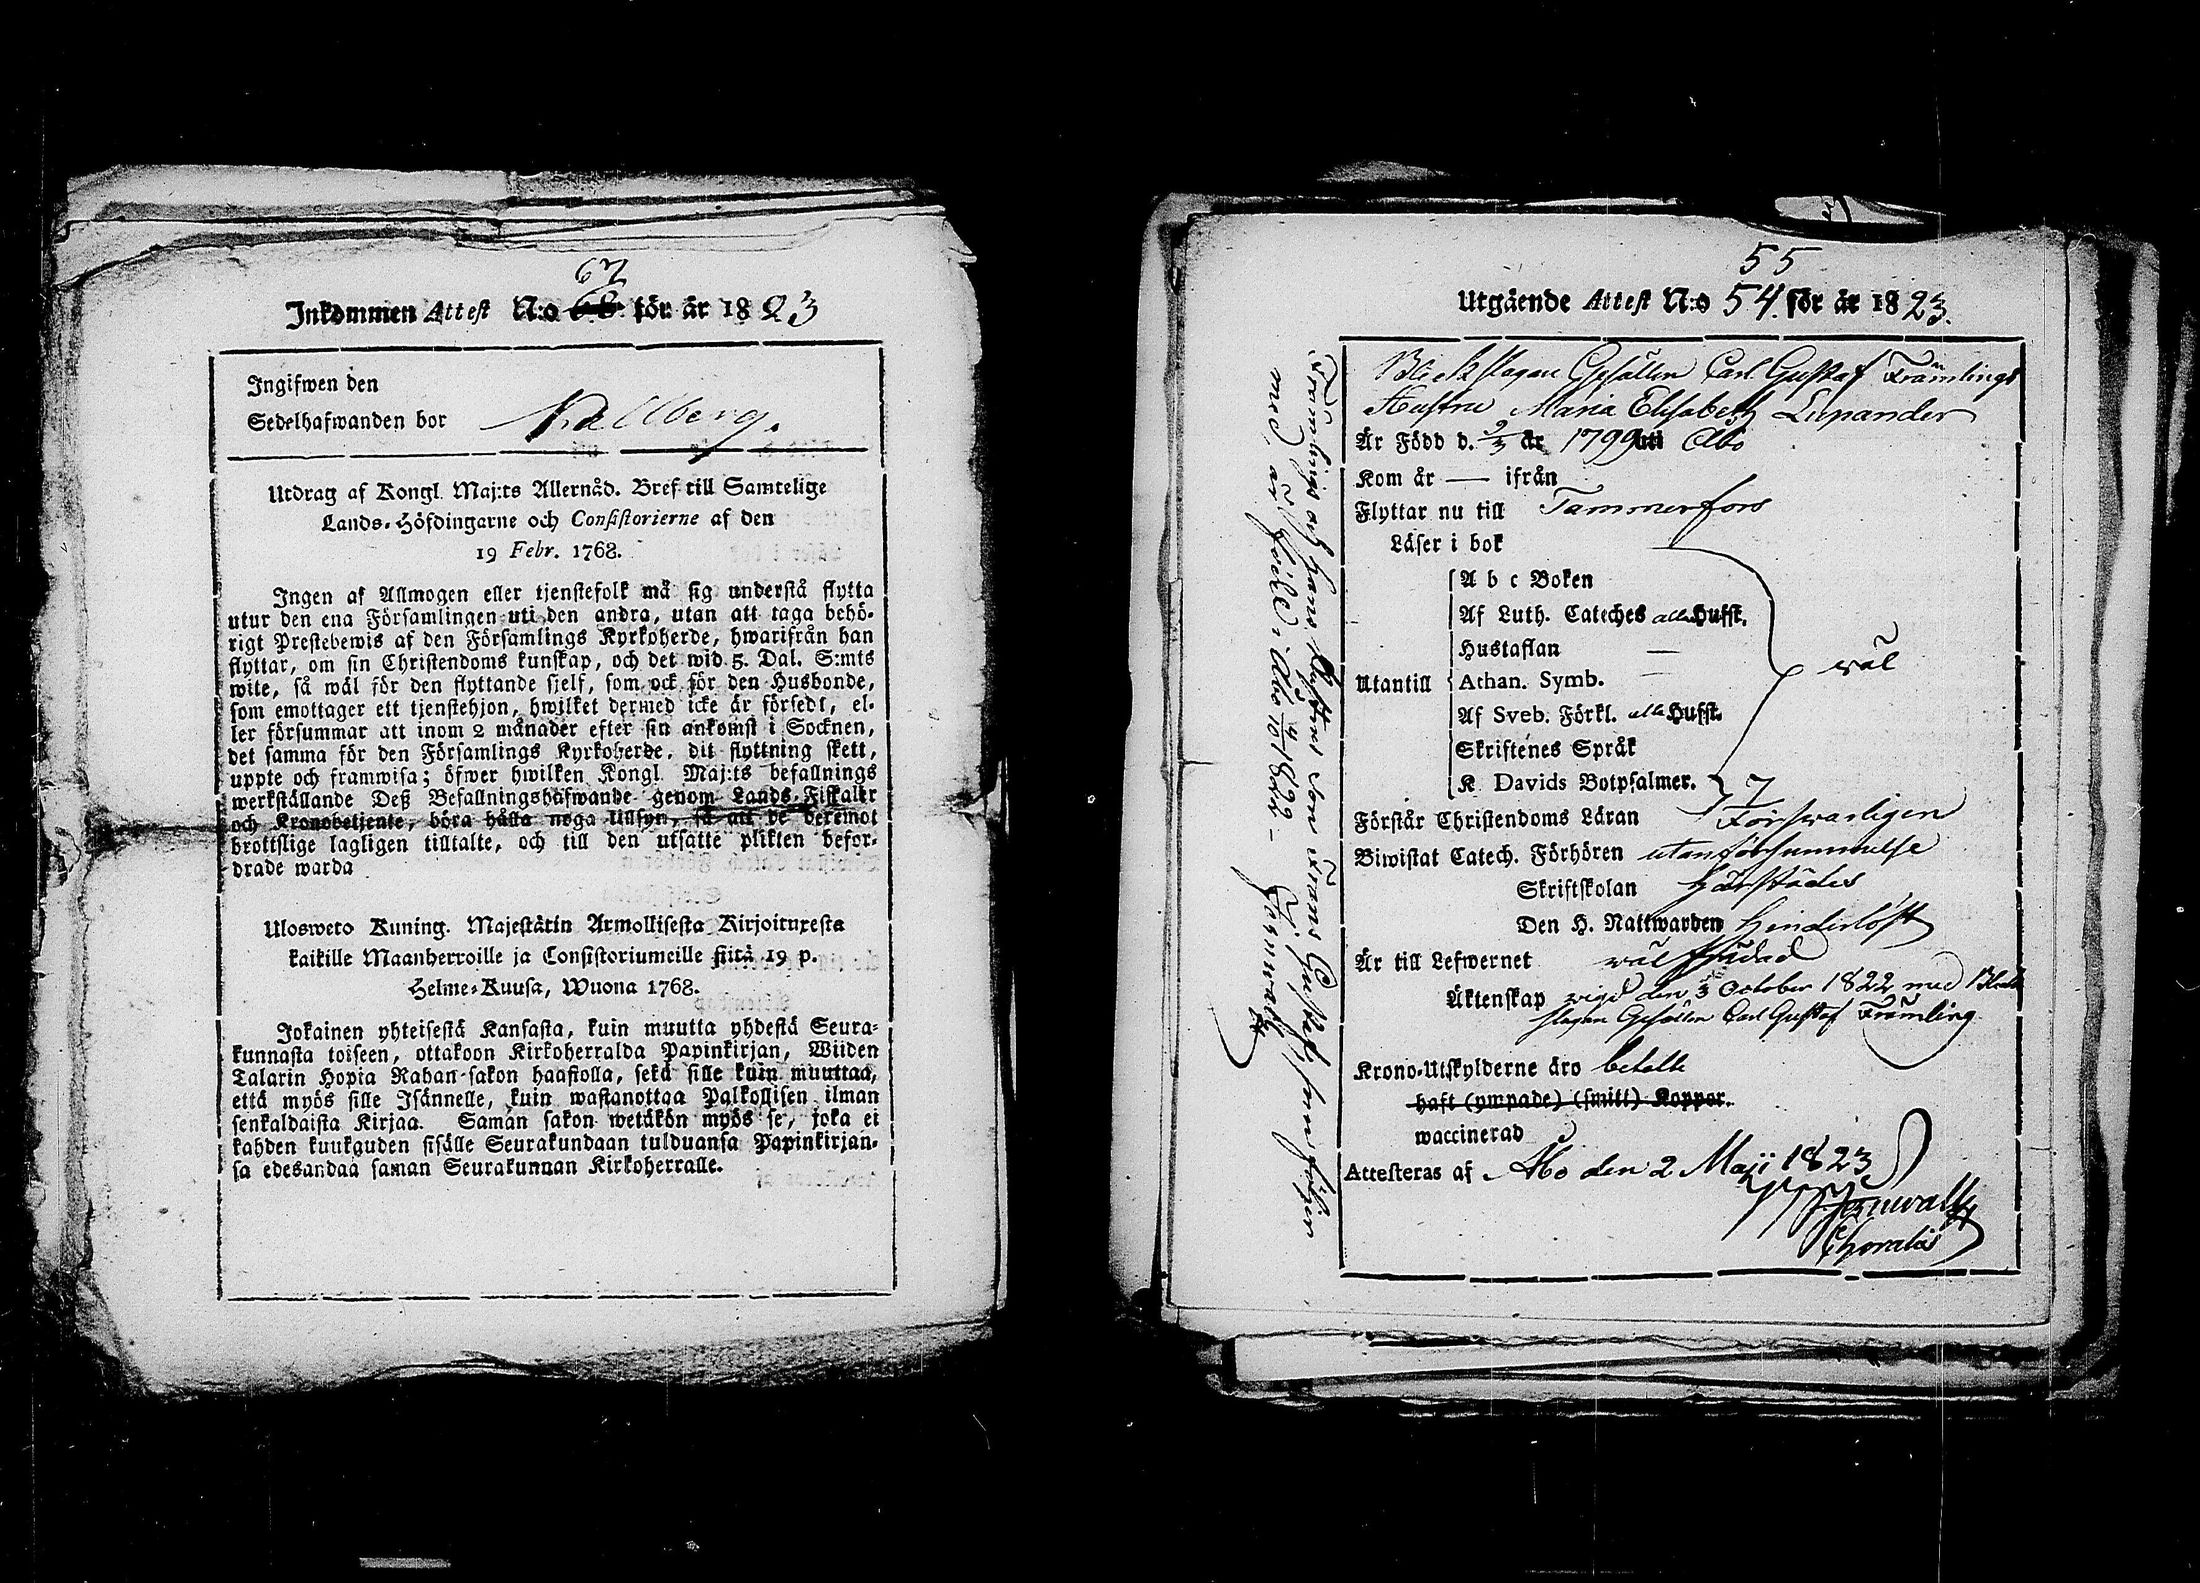 67
Inkommen Attest N:o 68 för år 1823
Ingifwen den
Sedelhafwanden bor Kallberg.
Utdrag af Kongl. Maj:ts Allernåd. Bref till Samtelige
Lands-Höfdingarne och Consistorierne af den
19 Febr. 1768.
Ingen af Allmogen eller tjenstefolk må sig understå flytta
utur den ena Församlingen uti den andra, utan att taga behö-
rigt Prestebewis af den Församlings Kyrkoherde, hwarifrån han
flyttar, om sin Christendoms kunskap, och det wid 5. Dal. S:mts
wite, så wäl för den flyttande sjelf, som ock för den Husbonde,
som emottager ett tjenstehjon, hwilket dermed icke är försedt, el-
ler försummar att inom 2 månader efter sin ankomst i Socknen,
det samma för den Församlings Kyrkoherde, dit flyttning skett,
uppte och framwisa; öfwer hwilken Kongl. Maj:ts befallnings
werkställande Deß Befallningshafwande genom Lands-Fiskaler
och Kronobetjente, böra hålla noga tillsyn, så att de deremot
brottslige lagligen tilltalte, och till den utsatte plikten befor-
drade warda
Ulosweto Kuning. Majestätin Armollisesta Kirjoituxesta
kaikille Maanherroille ja Consistoriumeille siitä 19 p.
Helme-Kuusa, Wuona 1768.
Jokainen yhteisestä Kansasta, kuin muutta yhdestä Seura-
kunnasta toiseen, ottakoon Kirkoherralda Papinkirjan, Wiiden
Talarin Hopia Rahan sakon haastolla, sekä sille kuin muuttaa,
että myös sille Isännelle, kuin wastanottaa Palkollisen ilman
senkaldaista Kirjaa. Saman sakon wetäkön myös se, joka ei
kahden kuukauden sisälle Seurakundaan tulduansa Papinkirjan-
sa edesandaa saman Seurakunnan Kirkoherralle.
55
Utgående Attest N:o 54. för år 1823.
Bleckslagare Gesällen Carl Gustaf Främlings
Hustru Maria Elisabeth Lupander
Är Född d. 9/3 år 1799 uti Åbo
Kom år — ifrån
Flyttar nu till Tammerfors
Läser i bok
A b c Boken
Af Luth. Cateches alla Hufst.
Hustaflan
Utantill Athan. Symb.
Af Sveb. Förkl. alla Hufst.
Skriftenes Språk
K. Davids Botpsalmer. 7
wäl
Förstår Christendoms Läran Förswarligen
Biwistat Catech. Förhören utan försummelse
Skriftskolan härstädes
Den H. Nattwarden hinderlöst
Är till Lefwernet wäl frejdad
Äktenskap vigd den 3 October 1822 med Bleck
slagare Gesällen Carl Gustaf Främling
Krono-Utskylderne äro betalte
haft (ympade) (smitt) Koppor.
waccinerad
Attesteras af Åbo den 2 Maji 1823
Främlings och hans Hustrus son Frans Gustaf, som följer
med, är född i Åbo 1822 —